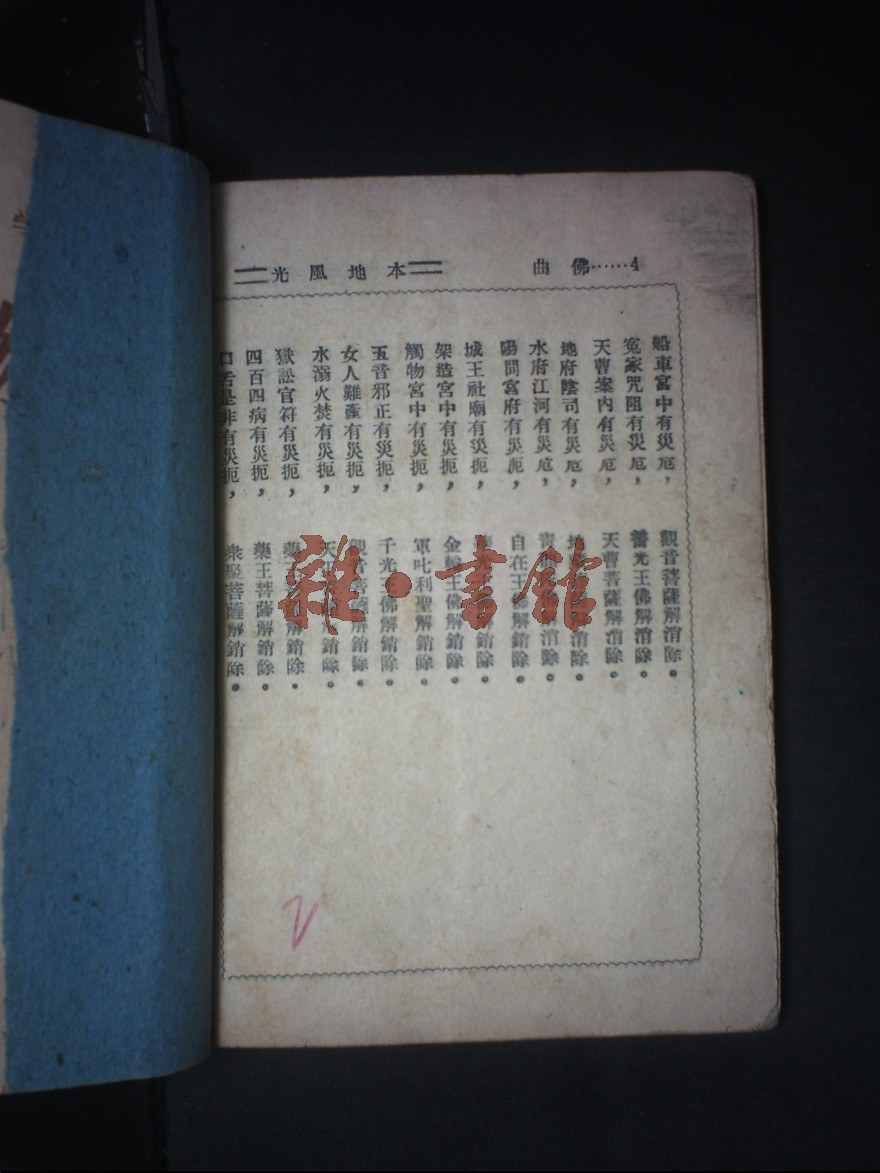 4……佛曲
＝本地風光＝
船車宮中有災厄，觀音菩薩解消除。
冤家咒阻有災厄，普光王佛解消除。
天曹案內有災厄，天曹菩薩解消除。
地府陰司有災厄，地消除。
水府江河有災厄，消除。
陽間宮府有災扼，自在王解銷除。
城王社廟有災扼，銷除。
架造宮中有災扼，金輪王佛解銷除。
觸物宮中有災扼，軍叱利聖解銷除。
五音邪正有災扼，千光王佛解銷除。
女人難產有災扼，觀音菩薩解銷除。
水溺火焚有災扼，天解銷除。
獄訟官符有災扼，解銷除。
四百四病有災扼，藥王菩薩解銷除。
口舌是非有災扼，衆聖菩薩解銷除。
雜·書館
2